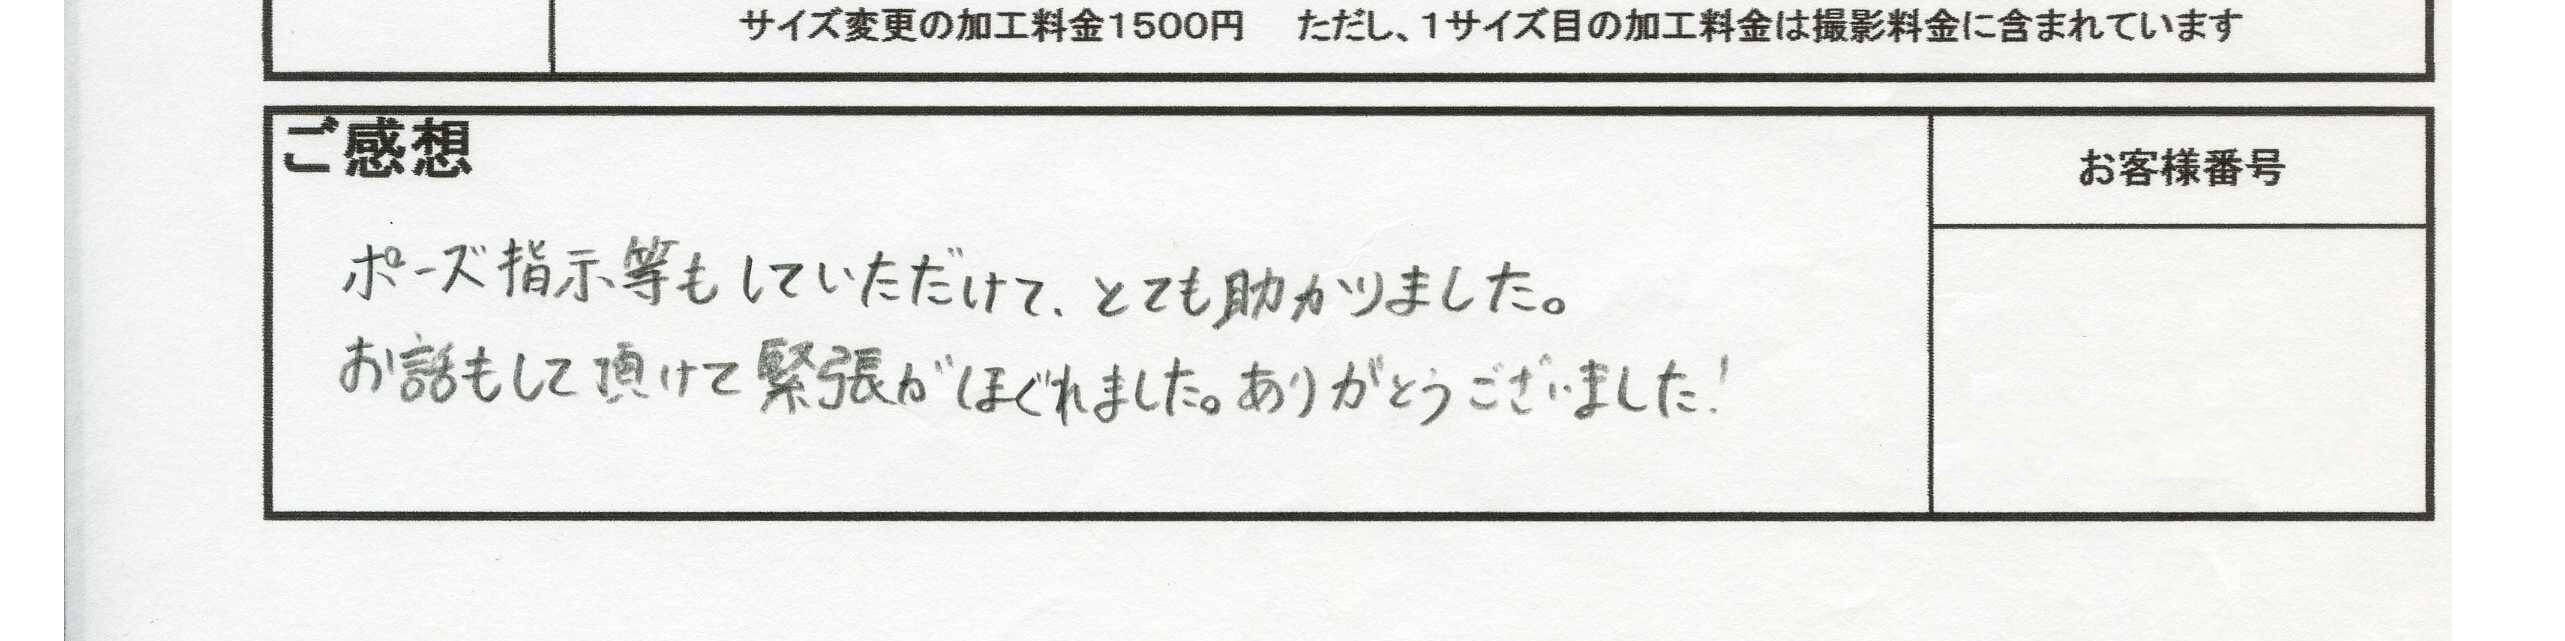 サイズ変更の加工料金1500円　ただし、1サイズ目の加工料金は撮影料金に含まれています
ご感想
お客様番号
ポーズ指示等もしていただけて、とても助かりました。
お話もして頂けて緊張がほぐれました。ありがとうございました!